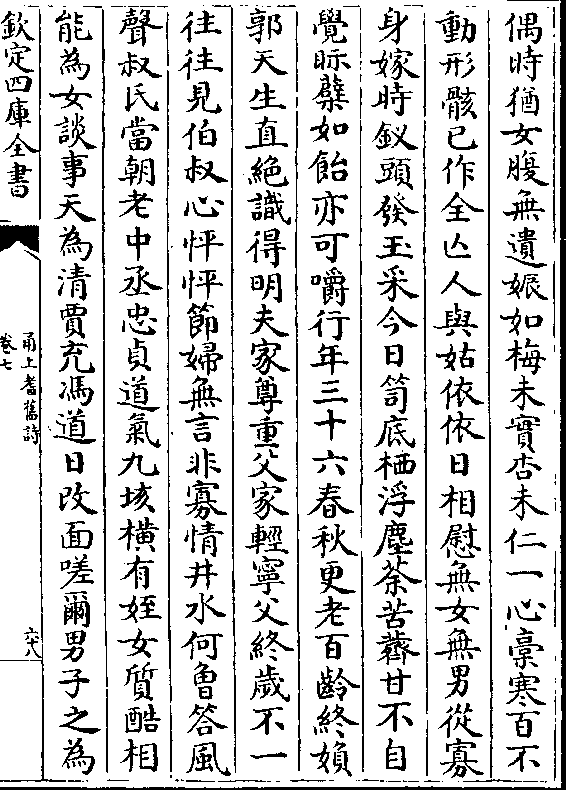 偶時猶女腹無遺娠如梅未實杏未仁一心稾寒百不
動形骸已作全亾人與姑依依日相慰無女無男從寡
身嫁時釵頭發玉采今日笥底栖浮塵荼苦薺甘不自
覺眎蘖如飴亦可嚼行年三十六春秋更老百齡終嬪
郭天生直絕識得明夫家尊重父家輕寧父終歲不一
往往見伯叔心怦怦節婦無言非寡情井水何魯答風
聲叔氏當朝老中丞忠貞道氣九垓橫有姪女質酷相
能為女談事天為清賈充馮道日改面嗟爾男子之為
欽定四庫全書
甬上耆舊詩
卷七
六十八